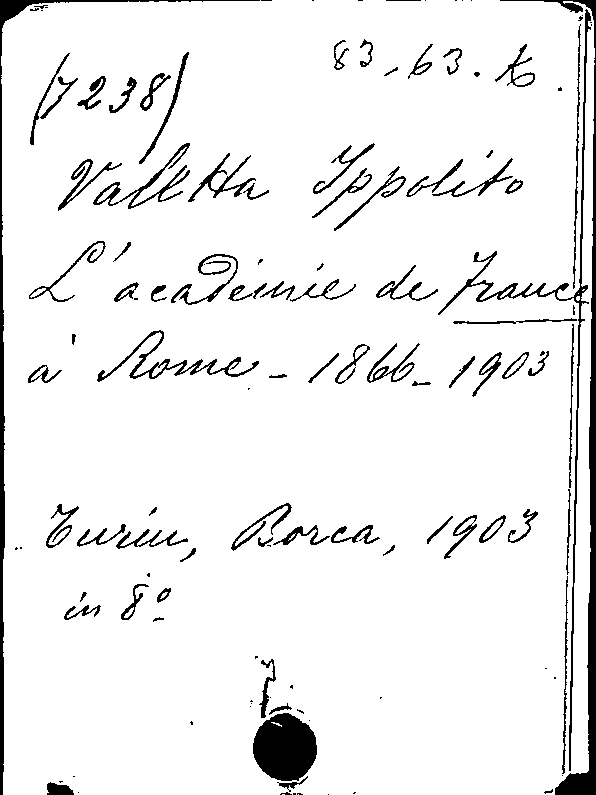 83-63. A.
(7238)
Valetta Ippolito
L'académie de France
à Rome - 1866-1903
Turin, Bocca, 1903
in 8º